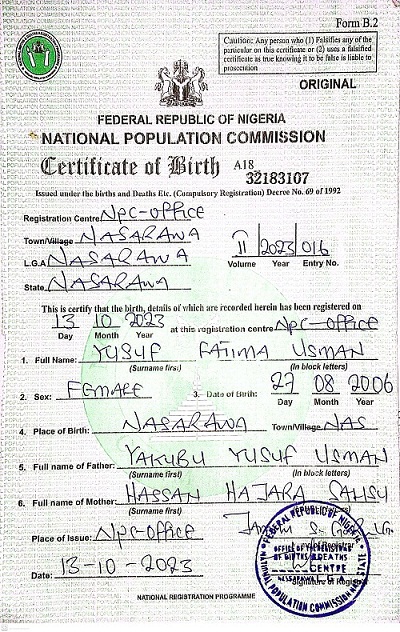 Form B.2
Caution: Any person who (1) Falsifies any of the
particular on this certificate or (2) uses a falsified
certificate as true knowing it to be false is liable to
prosecution
ORIGINAL
FEDERAL REPUBLIC OF NIGERIA
NATIONAL POPULATION COMMISSION
Certificate of Birth A18 32183107
Issued under the births and Deaths Etc. (Compulsory Registration) Decree No. 69 of 1992
Registration Centre NPC-OFFICE
Town/Village NASARAWA
L.G.A NASARAWA
II 2023 016
Volume Year Entry No.
State NASARAWA
This is certify that the birth, details of which are recorded herein has been registered on
13 10 2023 at this registration centre NPC-OFFICE
Day Month Year
1. Full Name: YUSUF FATIMA USMAN
(Surname first) (In block letters)
2. Sex: FEMALE 3. Date of Birth: 27 08 2006
Day Month Year
4. Place of Birth: NASARAWA Town/Village NAS
5. Full name of Father: YAKUBU YUSUF USMAN
(Surname first) (In block letters)
6. Full name of Mother: HASSAN HAJARA
(Surname first)
Place of Issue: NPC-OFFICE
Date: 13-10-2023
Signature of Registrar
FEDERAL REPUBLIC OF NIGERIA
OFFICE OF THE REGISTRAR
OF BIRTHS & DEATHS
CENTRE
NATIONAL POPULATION COMMISSION
NATIONAL REGISTRATION PROGRAMME